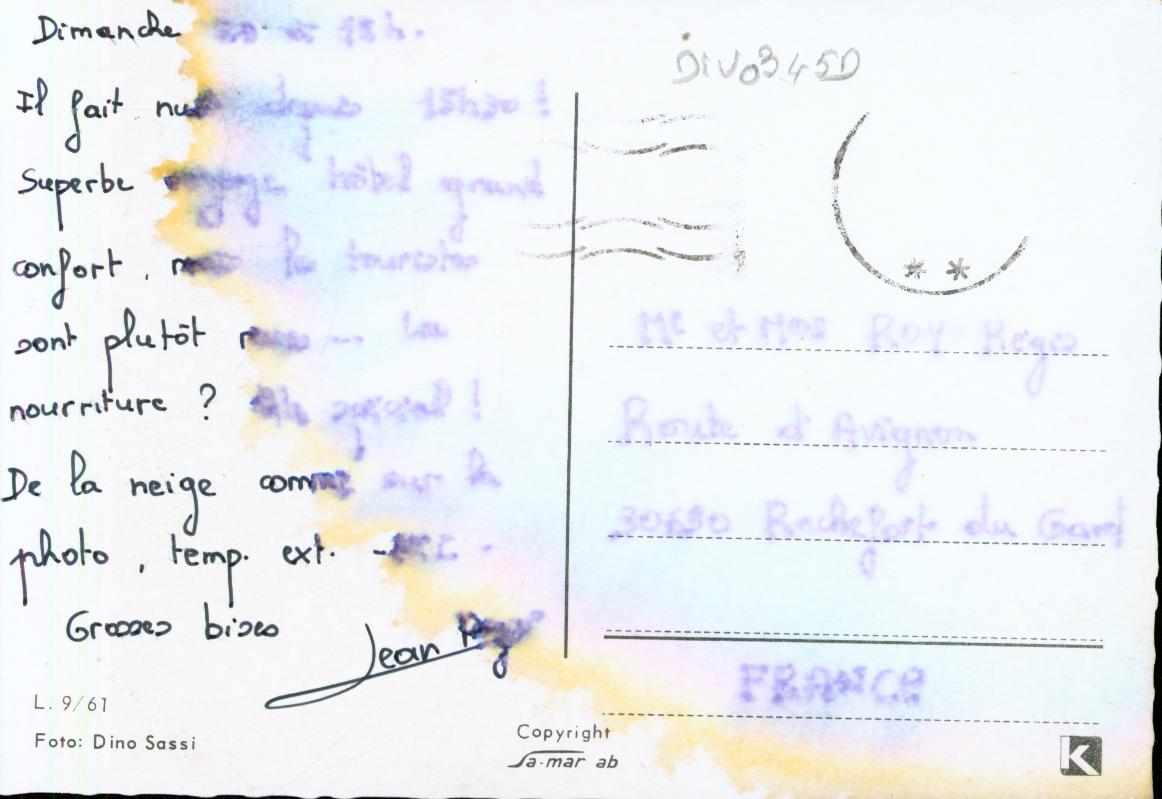 Dimanche 20 et 15h.
Il fait nuit depuis 15h30 !
Superbe voyage, hôtel grand
confort, mais les touristes
sont plutôt rares ... La
nourriture ? spécial !
De la neige comme sur la
photo, temp. ext.
Grosses bises
Jean
L. 9/61
Foto: Dino Sassi
Copyright
Sa-mar ab
DIV0345D
Mr et Mme ROY Régis
Route d'Avignon
30650 Rochefort du Gard
FRANCE
K